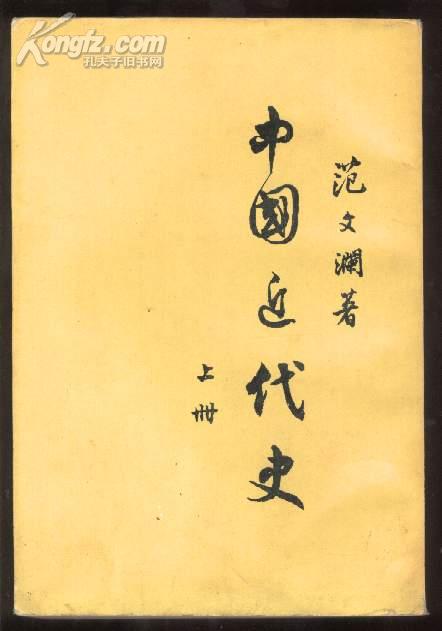 Kongfz.com
孔夫子旧书网
范文瀾著
中國近代史
上冊